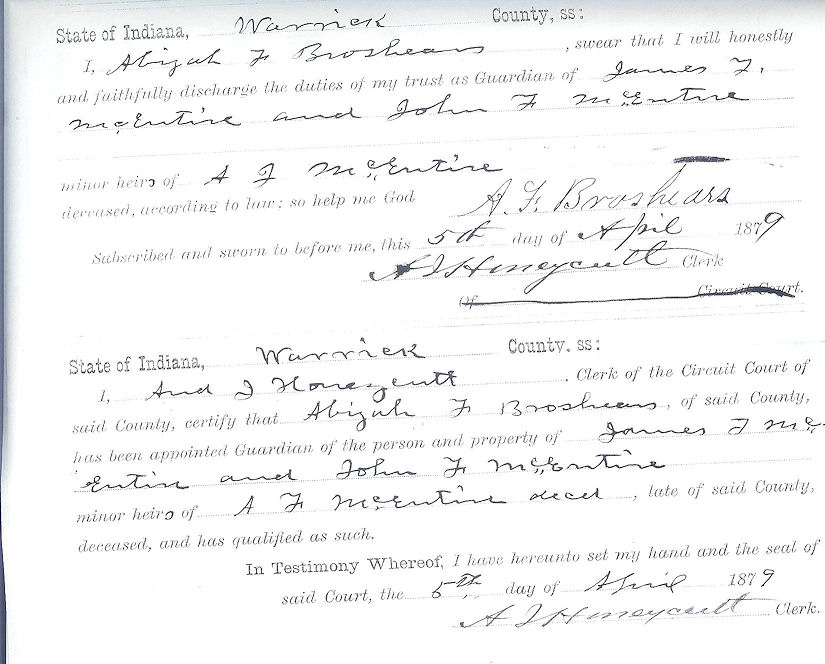 State of Indiana, Warrick County, ss:
I, Abizah F Broshears, swear that I will honestly
and faithfully discharge the duties of my trust as Guardian of James F.
McEntire and John F McEntire
minor heirs of A F McEntire
deceased, according to law; so help me God
A. F. Broshears
Subscribed and sworn to before me, this 5th day of April 1879
A J Honeycutt Clerk
Of Circuit Court.
State of Indiana, Warrick County, ss:
I, And J Honeycutt, Clerk of the Circuit Court of
said County, certify that Abizah F Broshears, of said County,
has been appointed Guardian of the person and property of James F Mc
Entire and John F McEntire
minor heirs of A F McEntire decd, late of said County,
deceased, and has qualified as such.
In Testimony Whereof, I have hereunto set my hand and the seal of
said Court, the 5th day of April 1879
A J Honeycutt Clerk.